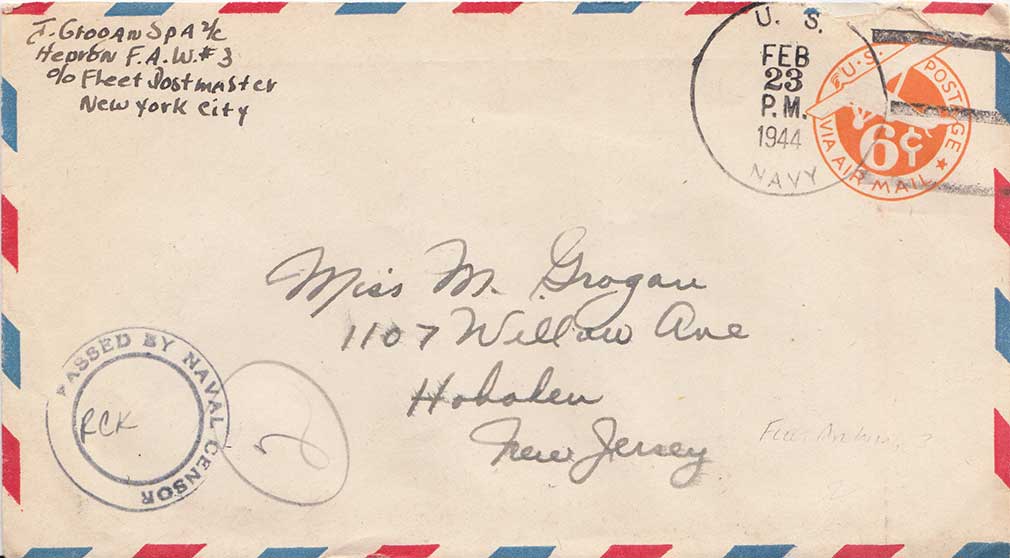 J. Grogan SpA 2/c
Hedron F.A.W. #3
c/o Fleet Postmaster
New York City
U. S.
FEB
23
P.M.
1944
NAVY
U.S. POSTAGE
6¢
VIA AIR MAIL
Miss M. Grogan
1107 Willow Ave
Hoboken
New Jersey
PASSED BY NAVAL CENSOR
RCK